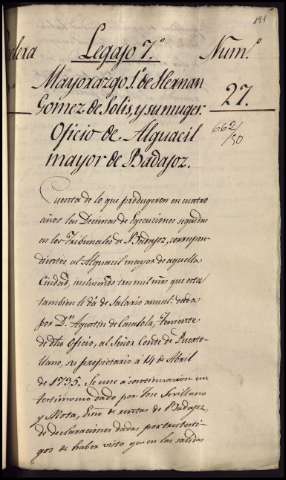 lera Legajo 7.º Num.º
Mayorazgo 1. de Hernan
Gomez de Solis, y su muger. 27.
Oficio de Alguacil 662/
mayor de Badajoz. 50
Cuenta de lo que produgeron en cuatro
años las Decimas de Egecuciones seguidas
en los Tribunales de Badajoz, correspon-
dientes al Alguacil mayor de aquella
Ciudad, inclusos tres mil que esta
tambien le dá de Salario anual: dada
por D.n Agustin de Teniente
de dho Oficio, al Señor Conde de Puerto-
llano, su propietario á 14 de Abril
de 1735. Se une á continuacion un
testimonio dado por José Arellano
y Mota, Esno de rentas de Badajoz,
de declaraciones dadas por testi-
gos de haber visto que en las salidas